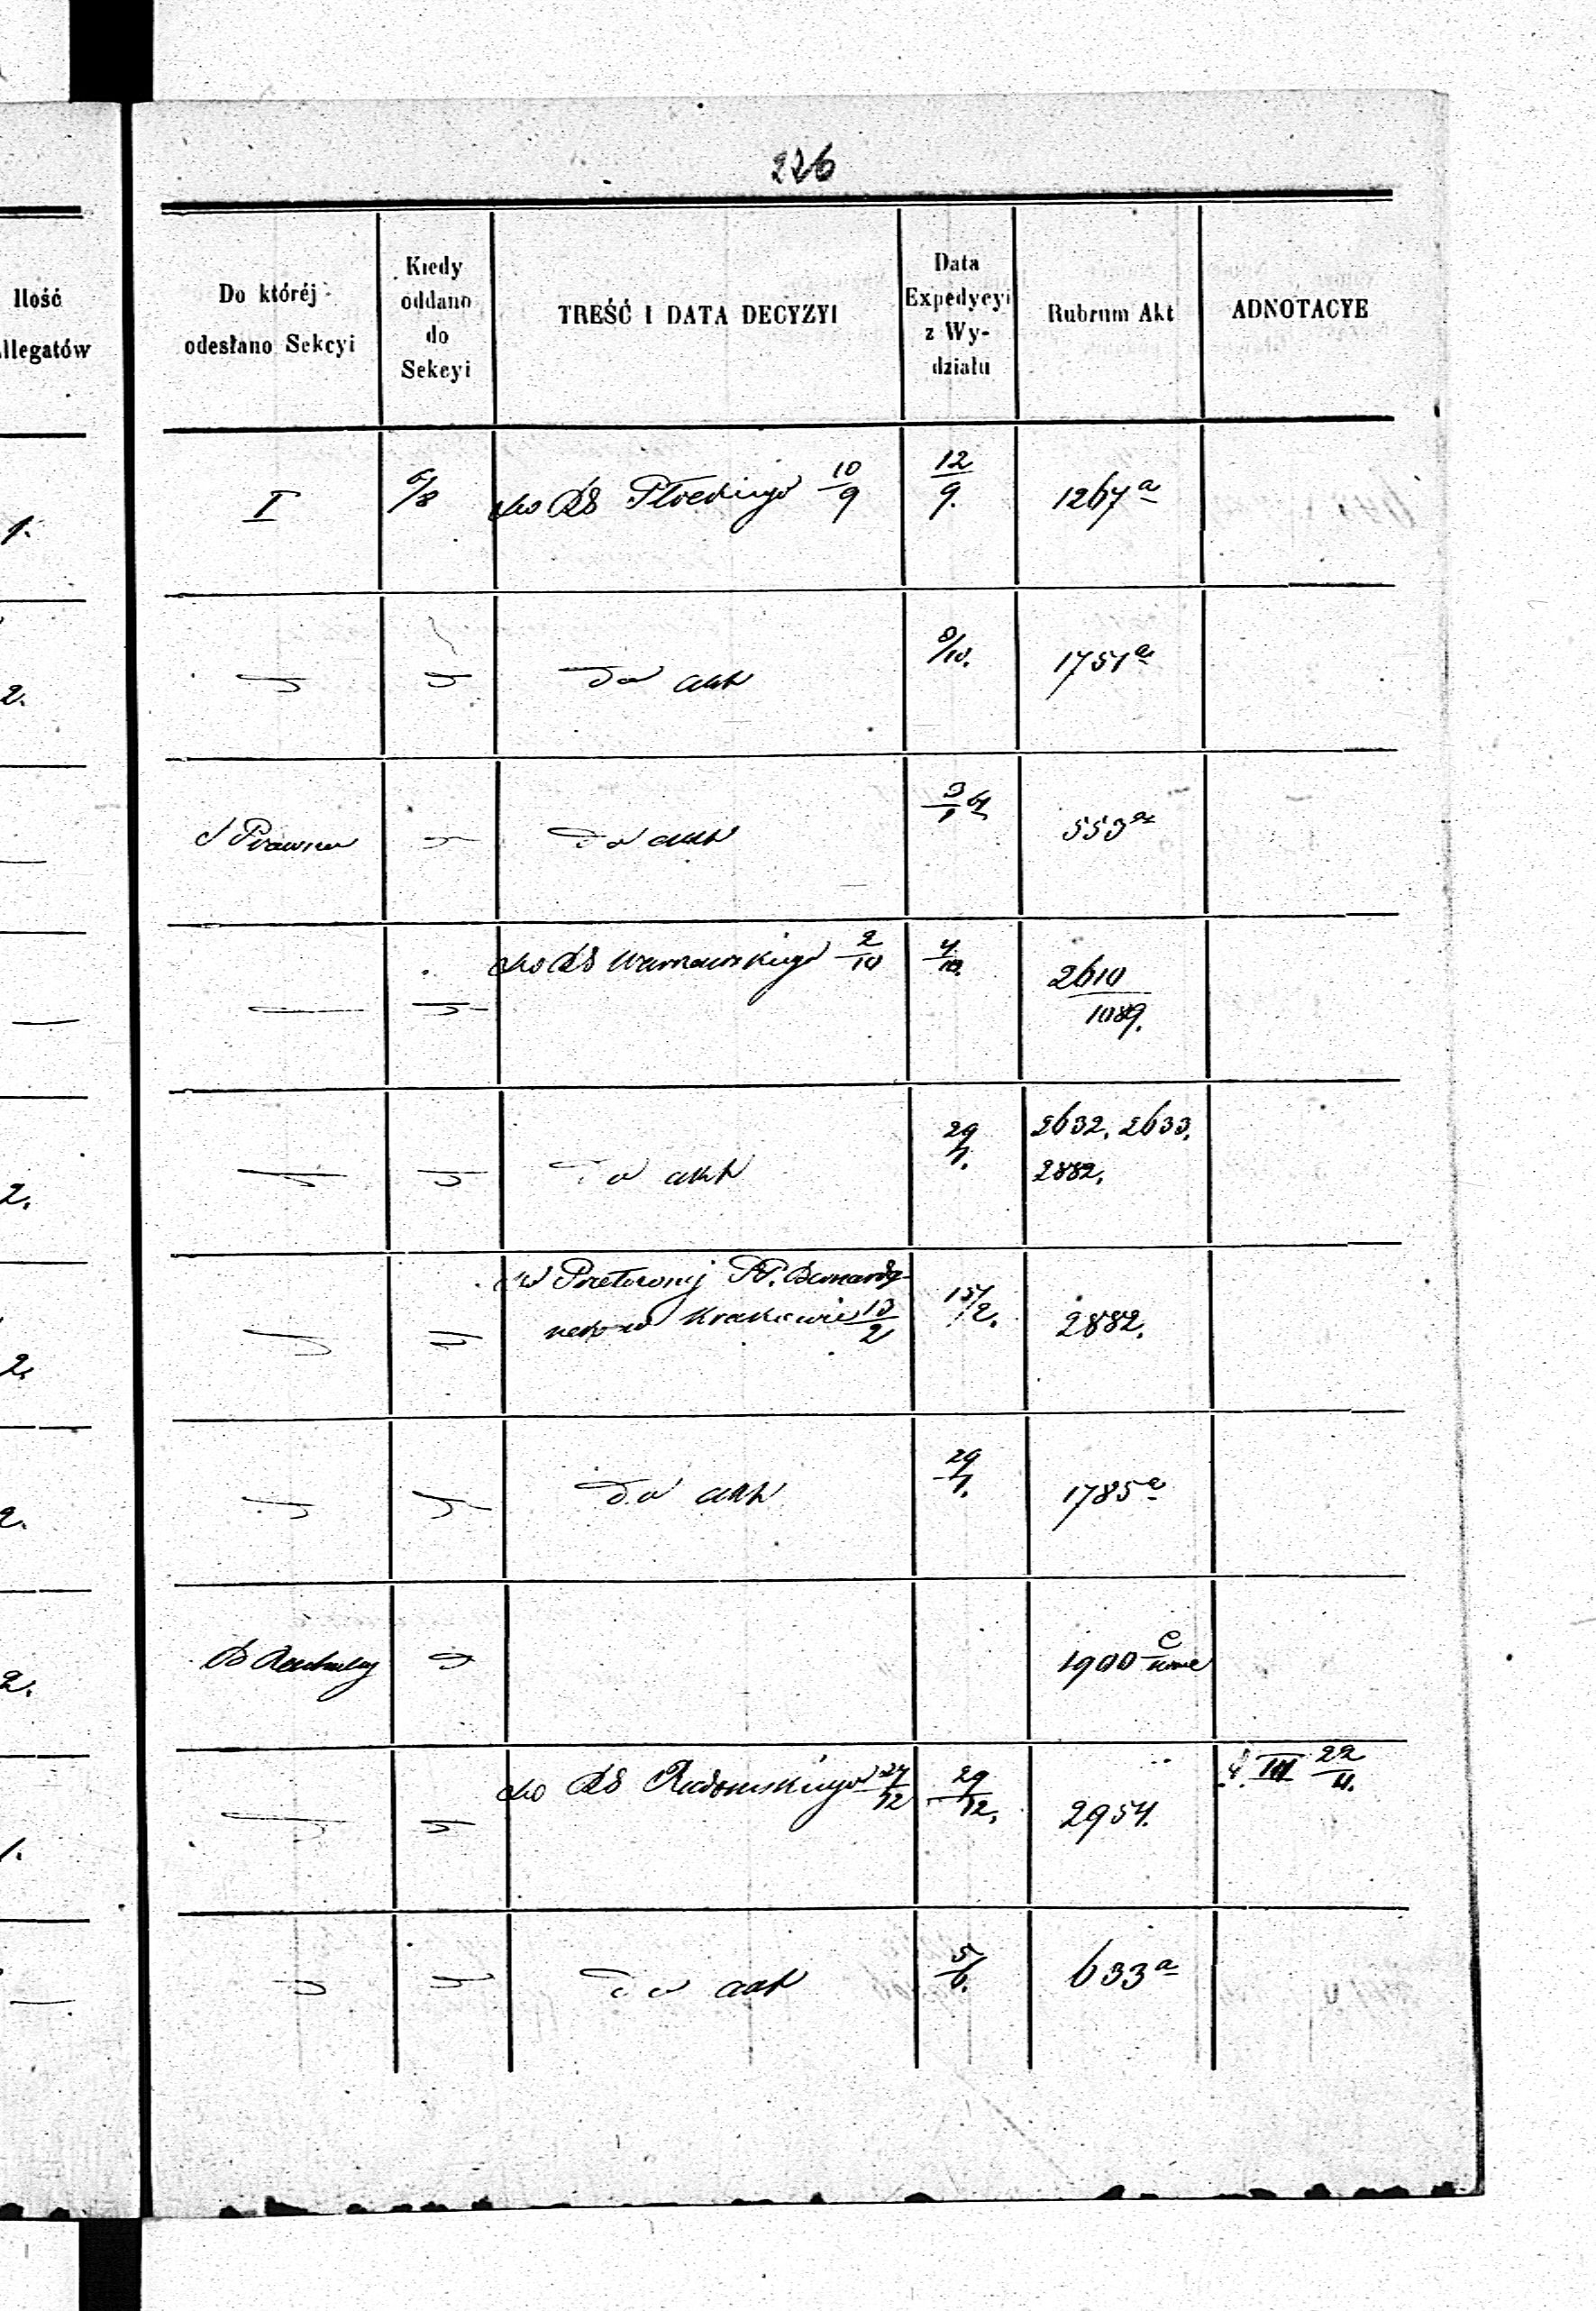 226
Ilość
Allegatów
Do któréj
odesłano Sekcyi
Kiedy
oddano
do
Sekcyi
TREŚĆ I DATA DECYZYI
Data
Expedycyi
z Wy-
działu
Rubrum Akt
ADNOTACYE
1.
I
6/8
do RS Płockiego 10/9
12/9.
1267 a
2.
Do akt
8/10.
1751 a
Prawna
Do akt
3/1 61
553 a
do RS Warszawskiego 2/10
4/10.
2610
1089.
2.
Do akt
29/1.
2632. 2633.
2882.
2.
Przełożonej PP. Bernardy-
nek w Krakowie 13/2
15/2.
2882.
2.
Do akt
29/1.
1785 a
2.
1900 c
1.
do RS Radomskiego 27/12
29/12.
2954.
III 22/11.
Do akt
5/6.
633 a